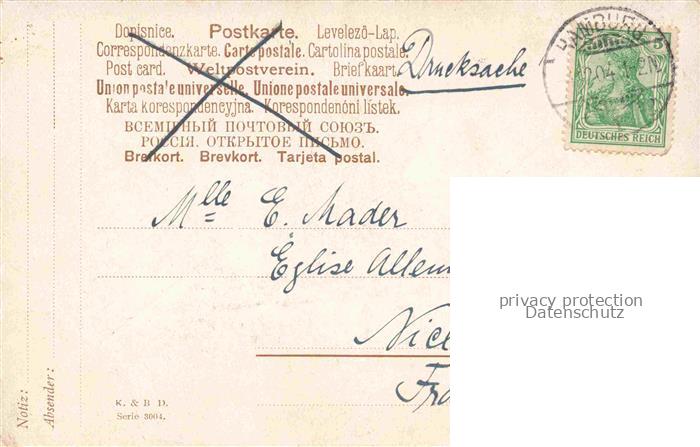 Dopisnice. Postkarte. Levelező-Lap.
Correspondenzkarte. Carte postale. Cartolina postale.
Post card. Weltpostverein. Briefkaart.
Union postale universelle. Unione postale universale.
Karta korespondencyjna. Korespondenční lístek.
ВСЕМІРНЫЙ ПОЧТОВЫЙ СОЮЗЪ.
РОССІЯ. ОТКРЫТОЕ ПИСЬМО.
Brefkort. Brevkort. Tarjeta postal.
Drucksache
HAMBURG
5
DEUTSCHES REICH
Mlle E. Mader
Église Allem
Nice
Fra
privacy protection
Datenschutz
Notiz:
Absender:
K. & B D.
Serie 3004.